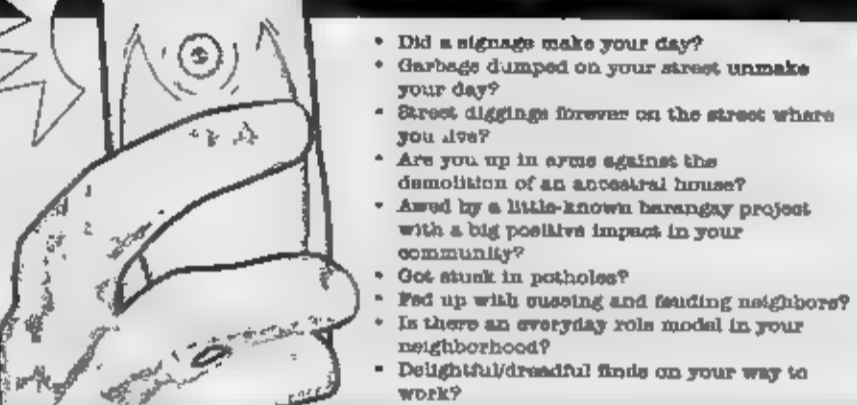 • Did a signage make your day?
• Garbage dumped on your street unmake
your day?
• Street diggings forever on the street where
you live?
• Are you up in arms against the
demolition of an ancestral house?
• Awed by a little-known barangay project
with a big positive impact in your
community?
• Got stuck in potholes?
• Fed up with cussing and feuding neighbors?
• Is there an everyday role model in your
neighborhood?
• Delightful/dreadful finds on your way to
work?